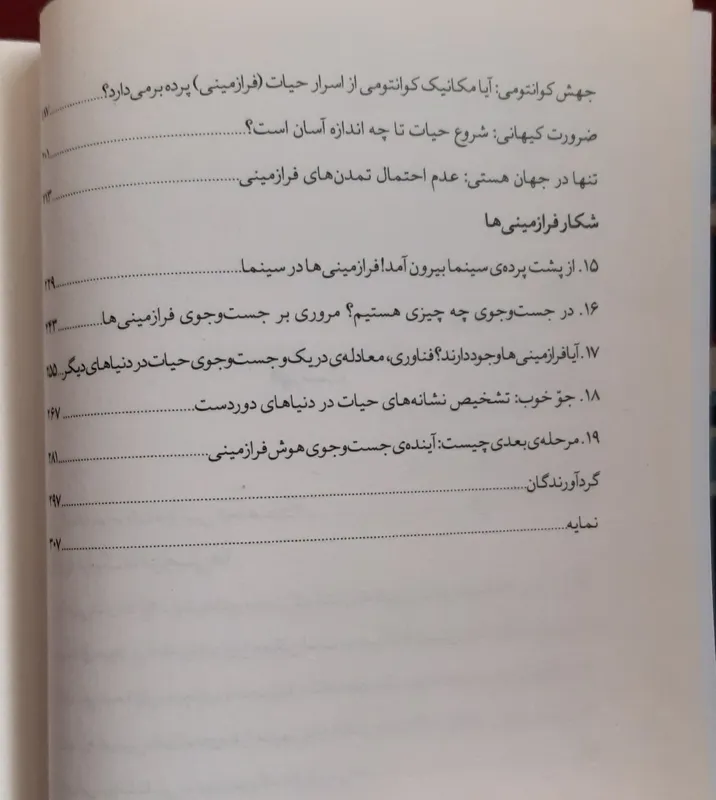 جهش کوانتومی: آیا مکانیک کوانتومی از اسرار حیات (فرازمینی) پرده برمی‌دارد؟
ضرورت کیهانی: شروع حیات تا چه اندازه آسان است؟
تنها در جهان هستی: عدم احتمال تمدن‌های فرازمینی ۲۱۳
شکار فرازمینی‌ها
۱۵. از پشت پرده‌ی سینما بیرون آمد! فرازمینی‌ها در سینما ۲۲۹
۱۶. در جست‌وجوی چه چیزی هستیم؟ مروری بر جست‌وجوی فرازمینی‌ها ۲۴۳
۱۷. آیا فرازمینی‌ها وجود دارند؟ فناوری، معادله‌ی دریک و جست‌وجوی حیات در دنیاهای دیگر ۲۵۵
۱۸. جوّ خوب: تشخیص نشانه‌های حیات در دنیاهای دوردست ۲۶۷
۱۹. مرحله‌ی بعدی چیست: آینده‌ی جست‌وجوی هوش فرازمینی ۲۸۱
گردآورندگان ۲۹۷
نمایه ۳۰۷